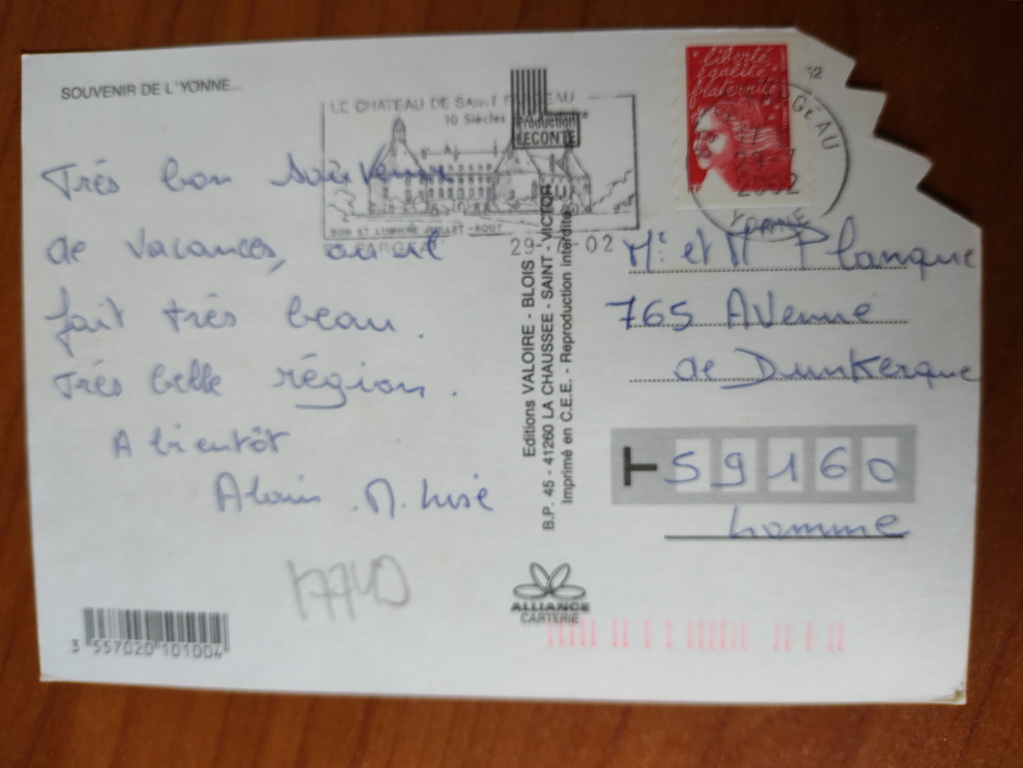 SOUVENIR DE L'YONNE...
LE CHATEAU DE SAINT FARGEAU
10 Siècles
SON ET LUMIERE JUILLET - AOUT
ST FARGEAU
29-7-02
Production
LECONTE
liberté
égalité
fraternité
GEAU
2002
YONNE
Très bon souvenir
de vacances, où il
fait très beau.
très belle région.
A bientôt
Alain . M. Lise
17740
Editions VALOIRE - BLOIS
B.P. 45 - 41260 LA CHAUSSEE - SAINT - VICTOR
Imprimé en C.E.E. - Reproduction interdite
Mr et M Planque
765 Avenue
de Dunkerque
59160
Lomme
ALLIANCE
CARTERIE
3 557020 101004